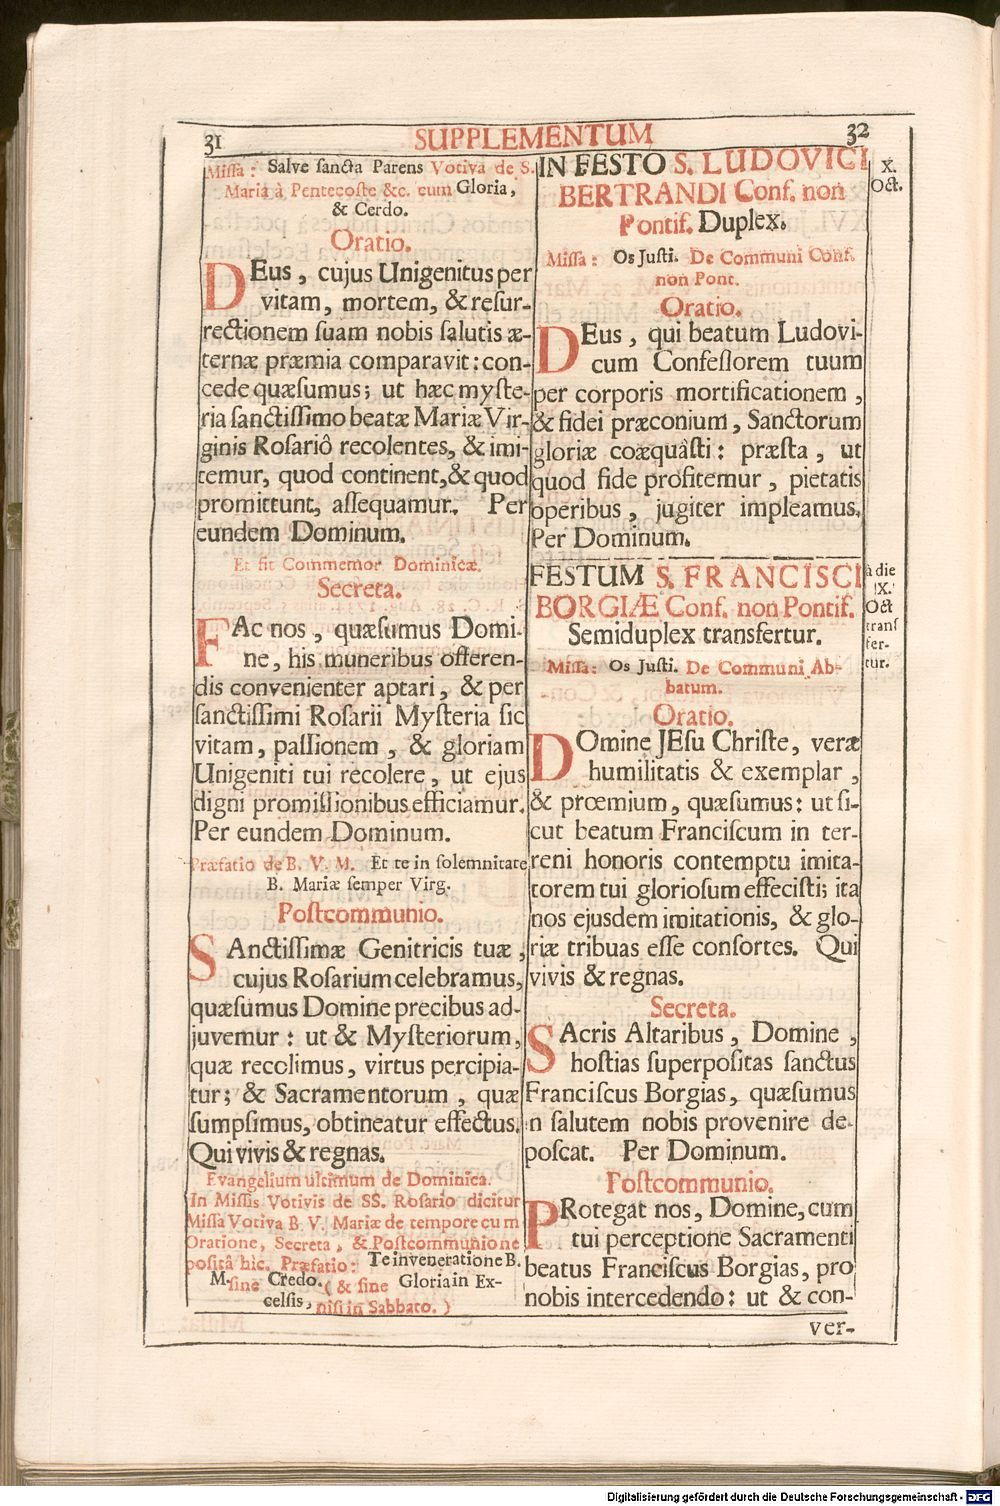 31
SUPPLEMENTUM
32
Missa: Salve sancta Parens Votiva de S.
Maria à Pentecoste &c. cum Gloria,
& Cerdo.
Oratio.
DEus, cujus Unigenitus per
vitam, mortem, & resur-
rectionem suam nobis salutis æ-
ternæ præmia comparavit: con-
cede quæsumus; ut hæc myste-
ria sanctissimo beatæ Mariæ Vir-
ginis Rosariô recolentes, & imi-
temur, quod continent, & quod
promittunt, assequamur. Per
eundem Dominum.
Et fit Commemor Dominicæ.
Secreta.
FAc nos, quæsumus Domi-
ne, his muneribus offeren-
dis convenienter aptari, & per
sanctissimi Rosarii Mysteria sic
vitam, passionem, & gloriam
Unigeniti tui recolere, ut ejus
digni promissionibus efficiamur.
Per eundem Dominum.
Præfatio de B. V. M. Et te in solemnitate
B. Mariæ semper Virg.
Postcommunio.
SAnctissimæ Genitricis tuæ,
cujus Rosarium celebramus,
quæsumus Domine precibus ad-
juvemur: ut & Mysteriorum,
quæ recolimus, virtus percipia-
tur; & Sacramentorum, quæ
sumpsimus, obtineatur effectus.
Qui vivis & regnas.
Evangelium ultimum de Dominica.
In Missis Votivis de SS. Rosario dicitur
Missa Votiva B. V. Mariæ de tempore cum
Oratione, Secreta, & Postcommunione
positâ hîc. Præfatio: Te in veneratione B.
M. sine Credo. (& sine Gloria in Ex-
celsis, nisi in Sabbato.)
IN FESTO S. LUDOVICI
BERTRANDI Conf. non
Pontif. Duplex.
X.
Oct.
Missa: Os Justi. De Communi Conf.
non Pont.
Oratio.
DEus, qui beatum Ludovi-
cum Confessorem tuum
per corporis mortificationem,
& fidei præconium, Sanctorum
gloriæ coæquâsti: præsta, ut
quod fide profitemur, pietatis
operibus, jugiter impleamus.
Per Dominum.
FESTUM S. FRANCISCI
BORGIÆ Conf. non Pontif.
Semiduplex transfertur.
à die
IX.
Oct
trans
fer-
tur.
Missa: Os Justi. De Communi Ab-
batum.
Oratio.
DOmine JEsu Christe, veræ
humilitatis & exemplar,
& prœmium, quæsumus: ut si-
cut beatum Franciscum in ter-
reni honoris contemptu imita-
torem tui gloriosum effecisti; ita
nos ejusdem imitationis, & glo-
riæ tribuas esse consortes. Qui
vivis & regnas.
Secreta.
SAcris Altaribus, Domine,
hostias superpositas sanctus
Franciscus Borgias, quæsumus
in salutem nobis provenire de-
poscat. Per Dominum.
Postcommunio.
PRotegat nos, Domine, cum
tui perceptione Sacramenti
beatus Franciscus Borgias, pro
nobis intercedendo: ut & con-
ver-
Digitalisierung gefördert durch die Deutsche Forschungsgemeinschaft - DFG